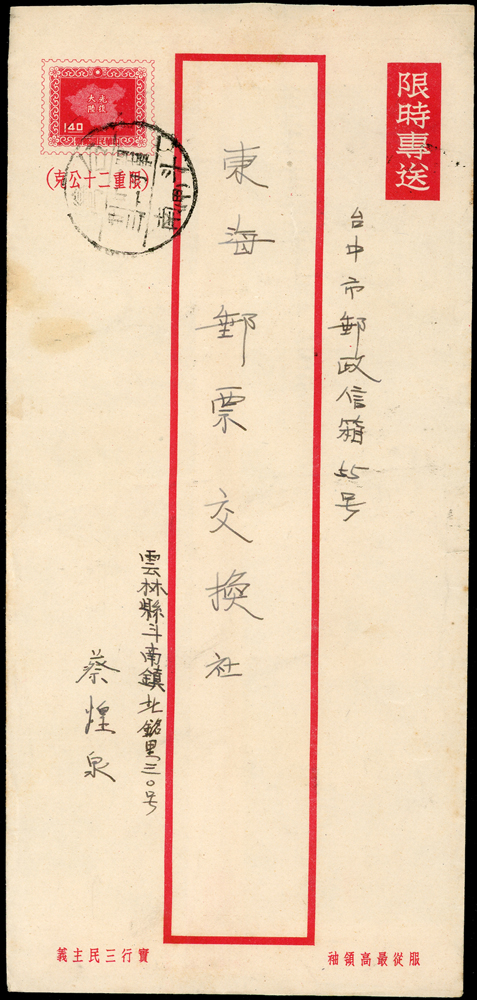 限時專送
台中市郵政信箱55号
東海郵票交換社
雲林縣斗南鎮北銘里三〇号
蔡煌泉
光復大陸
140
(限重二十公克)
服從最高領袖
實行三民主義